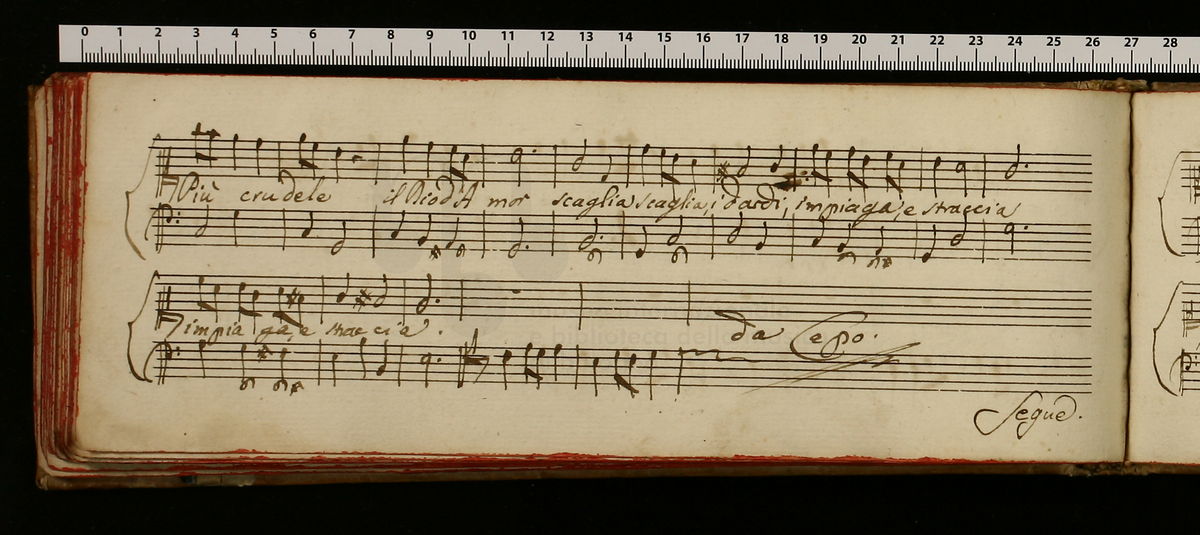 0 1 2 3 4 5 6 7 8 9 10 11 12 13 14 15 16 17 18 19 20 21 22 23 24 25 26 27 28
Più crudele il Dio d'Amor scaglia scaglia, i dardi, impiaga, e straccia
impiaga, e straccia.
e biblioteca della
da Capo.
Segue.